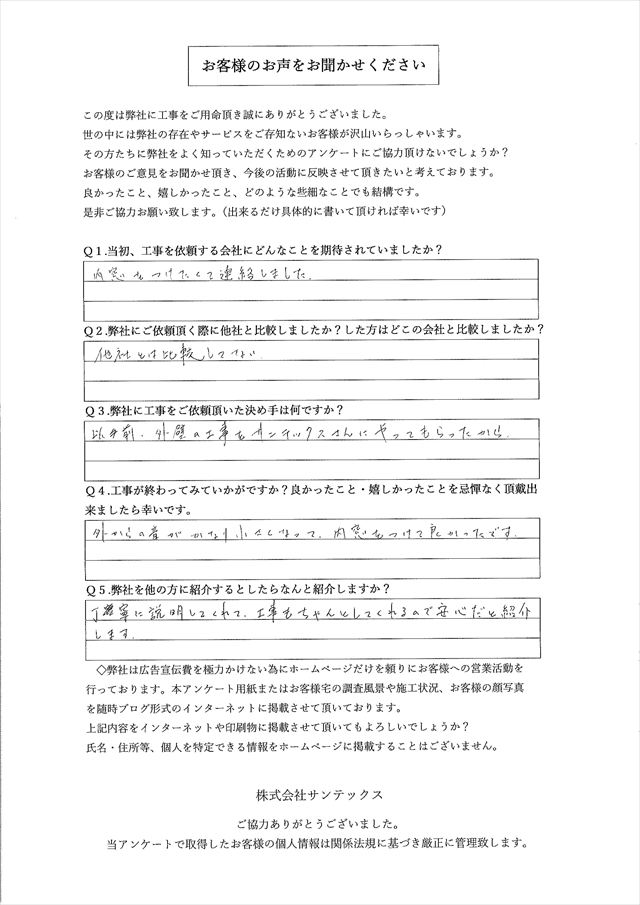 お客様のお声をお聞かせください
この度は弊社に工事をご用命頂き誠にありがとうございました。
世の中には弊社の存在やサービスをご存知ないお客様が沢山いらっしゃいます。
その方たちに弊社をよく知っていただくためのアンケートにご協力頂けないでしょうか？
お客様のご意見をお聞かせ頂き、今後の活動に反映させて頂きたいと考えております。
良かったこと、嬉しかったこと、どのような些細なことでも結構です。
是非ご協力お願い致します。（出来るだけ具体的に書いて頂ければ幸いです）
Ｑ１.当初、工事を依頼する会社にどんなことを期待されていましたか？
内窓をつけたくて連絡しました.
Ｑ２.弊社にご依頼頂く際に他社と比較しましたか？した方はどこの会社と比較しましたか？
他社とは比較してない.
Ｑ３.弊社に工事をご依頼頂いた決め手は何ですか？
以前、外壁の工事をサンテックスさんにやってもらったから.
Ｑ４.工事が終わってみていかがですか？良かったこと・嬉しかったことを忌憚なく頂戴出
来ましたら幸いです。
外からの音がかなり小さくなって、内窓をつけて良かったです.
Ｑ５.弊社を他の方に紹介するとしたらなんと紹介しますか？
丁寧に説明してくれて、工事もちゃんとしてくれるので安心だと紹介
します.
◇弊社は広告宣伝費を極力かけない為にホームページだけを頼りにお客様への営業活動を
行っております。本アンケート用紙またはお客様宅の調査風景や施工状況、お客様の顔写真
を随時ブログ形式のインターネットに掲載させて頂いております。
上記内容をインターネットや印刷物に掲載させて頂いてもよろしいでしょうか？
氏名・住所等、個人を特定できる情報をホームページに掲載することはございません。
株式会社サンテックス
ご協力ありがとうございました。
当アンケートで取得したお客様の個人情報は関係法規に基づき厳正に管理致します。